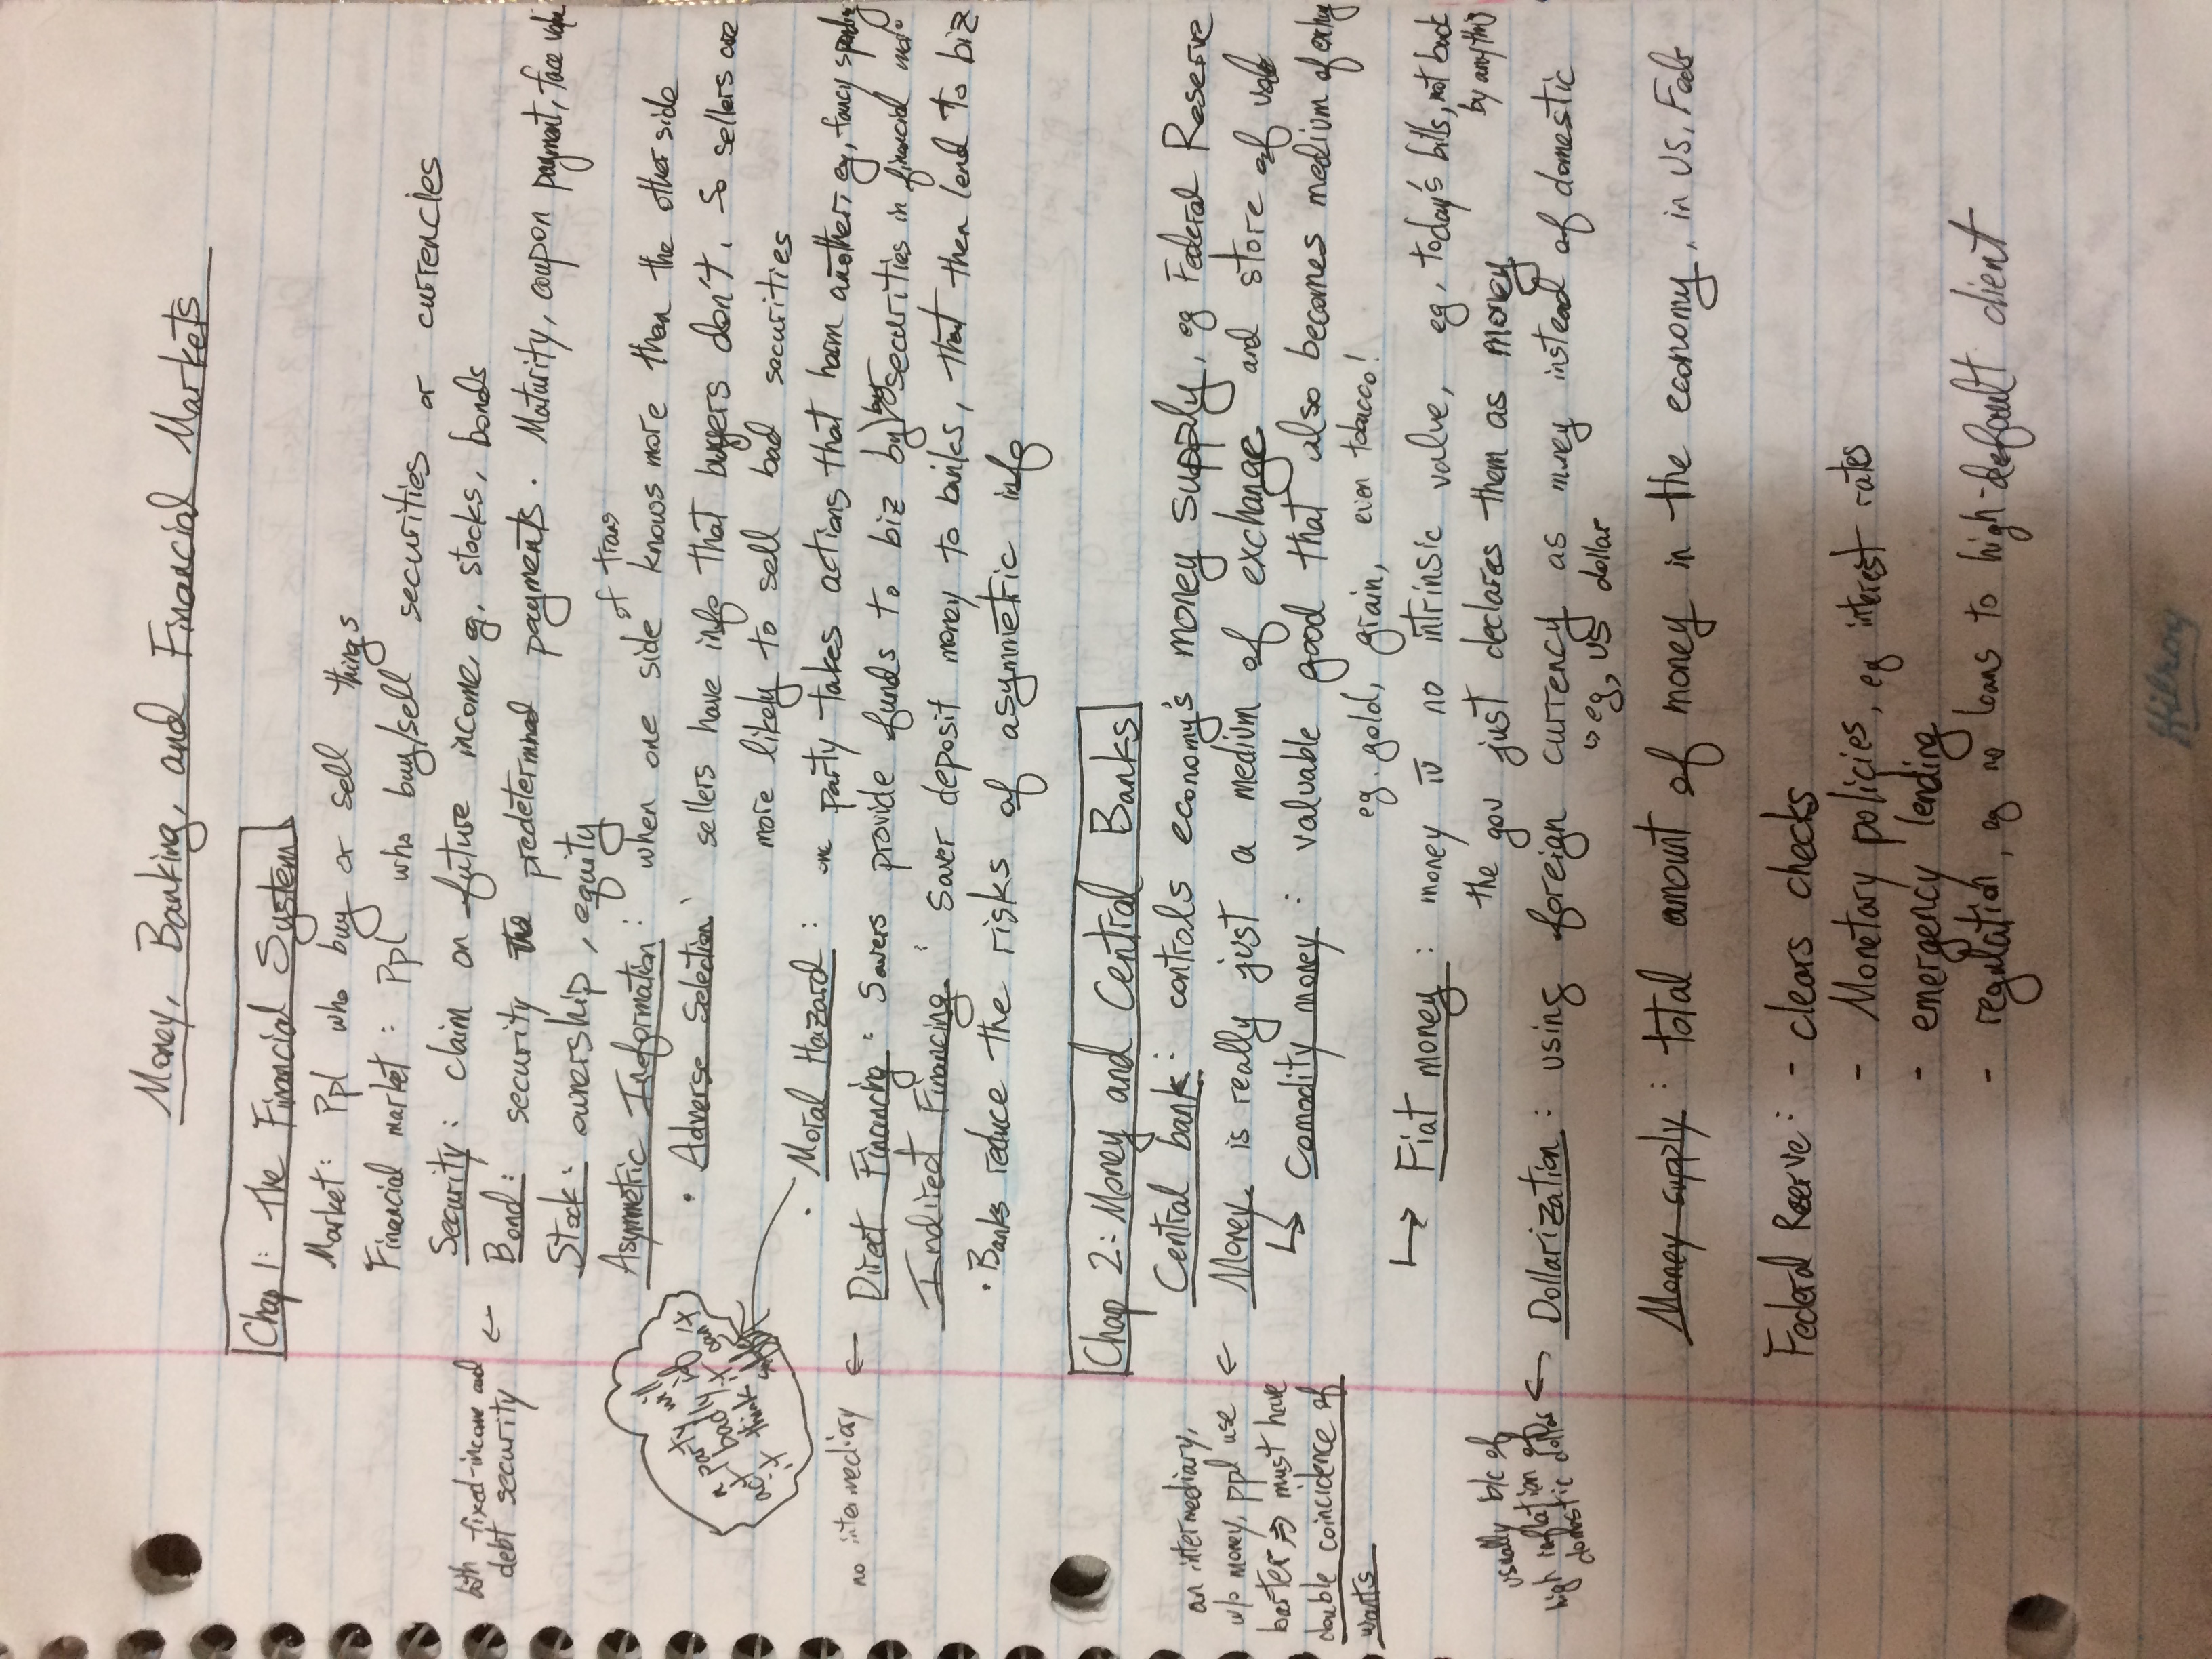 Money, Banking, and Financial Markets
Chap 1: The Financial System
Market: Ppl who buy or sell things
Financial market: Ppl who buy/sell securities or currencies
Security: claim on future income, eg, stocks, bonds
both fixed-income and
debt security ←
Bond: security predetermined payments. Maturity, coupon payment, face value
Stock: ownership, equity
of trans
Asymmetric Information: when one side knows more than the other side
• Adverse Selection: sellers have info that buyers don't. So sellers are
more likely to sell bad securities
a party will
act badly if
it think it can't
• Moral Hazard: one party takes actions that harm another, eg, fancy spending
no intermediary ←
Direct Financing: Savers provide funds to biz by buy securities in financial
Indirect Financing: Saver deposit money to banks, that then lend to biz
• Banks reduce the risks of asymmetric info
Chap 2: Money and Central Banks
Central bank: controls economy's money supply, eg Federal Reserve
an intermediary,
w/o money, ppl use ←
barter => must have
double coincidence of
wants
Money is really just a medium of exchange and store of
↳ Comodity money: valuable good that also becomes medium of
eg. gold, grain, even tobacco!
↳ Fiat money: money no intrinsic value, eg, today's bills, not back
by anything
the gov just declares them as money
usually b/c of
high inflation of
domestic dollar ←
Dollarization: using foreign currency as money instead of domestic
↳ eg, US dollar
Money supply: total amount of money in the economy, in US, Feds
Federal Reserve: - clears checks
- Monetary policies, eg interest rates
- emergency lending
- regulation, eg no loans to high-default client
Hilroy